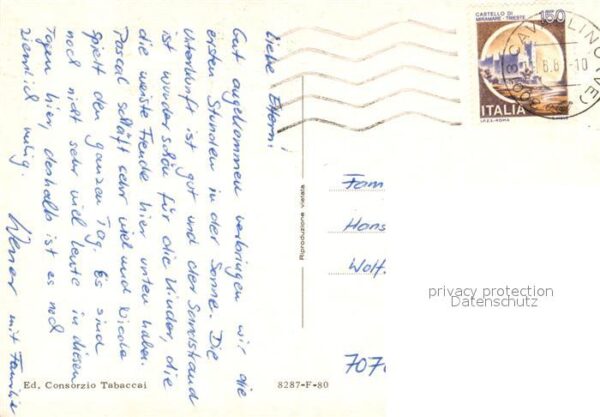 Liebe Eltern!
Gut angekommen verbringen wir die
ersten Stunden in der Sonne. Die
Unterkunft ist gut und der Sandstrand
ist wunderschön für die Kinder, die
die meiste Freude hier unten haben.
Pascal schläft sehr viel und Nicole
spielt den ganzen Tag. Es sind
noch nicht sehr viel Leute in diesen
Tagen hier, deshalb ist es noch
ziemlich ruhig.
Werner mit Familie
CASTELLO DI
MIRAMARE - TRIESTE
150
ITALIA
I.P.Z.S. - ROMA
CAVALLINO (VE)
Fam
Hans
Wolf.
707
privacy protection
Datenschutz
Riproduzione vietata
Ed. Consorzio Tabaccai
8287-F-80